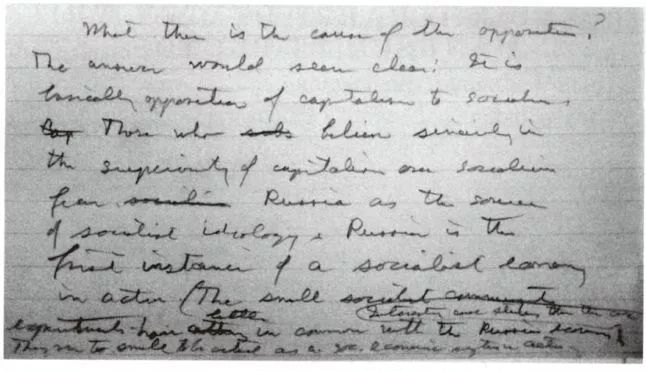 What then is the cause of the opposition?
The answer would seem clear: It is
basically opposition of capitalism to socialism.
Cap Those who believe sincerely in
the superiority of capitalism over socialism
fear socialism Russia as the source
of socialist ideology. Russia is the
first instance of a socialist economy
in action (The small socialist community
Interesting
experiments have little in common with the Russian economy
They are too small to be as a economic system in action